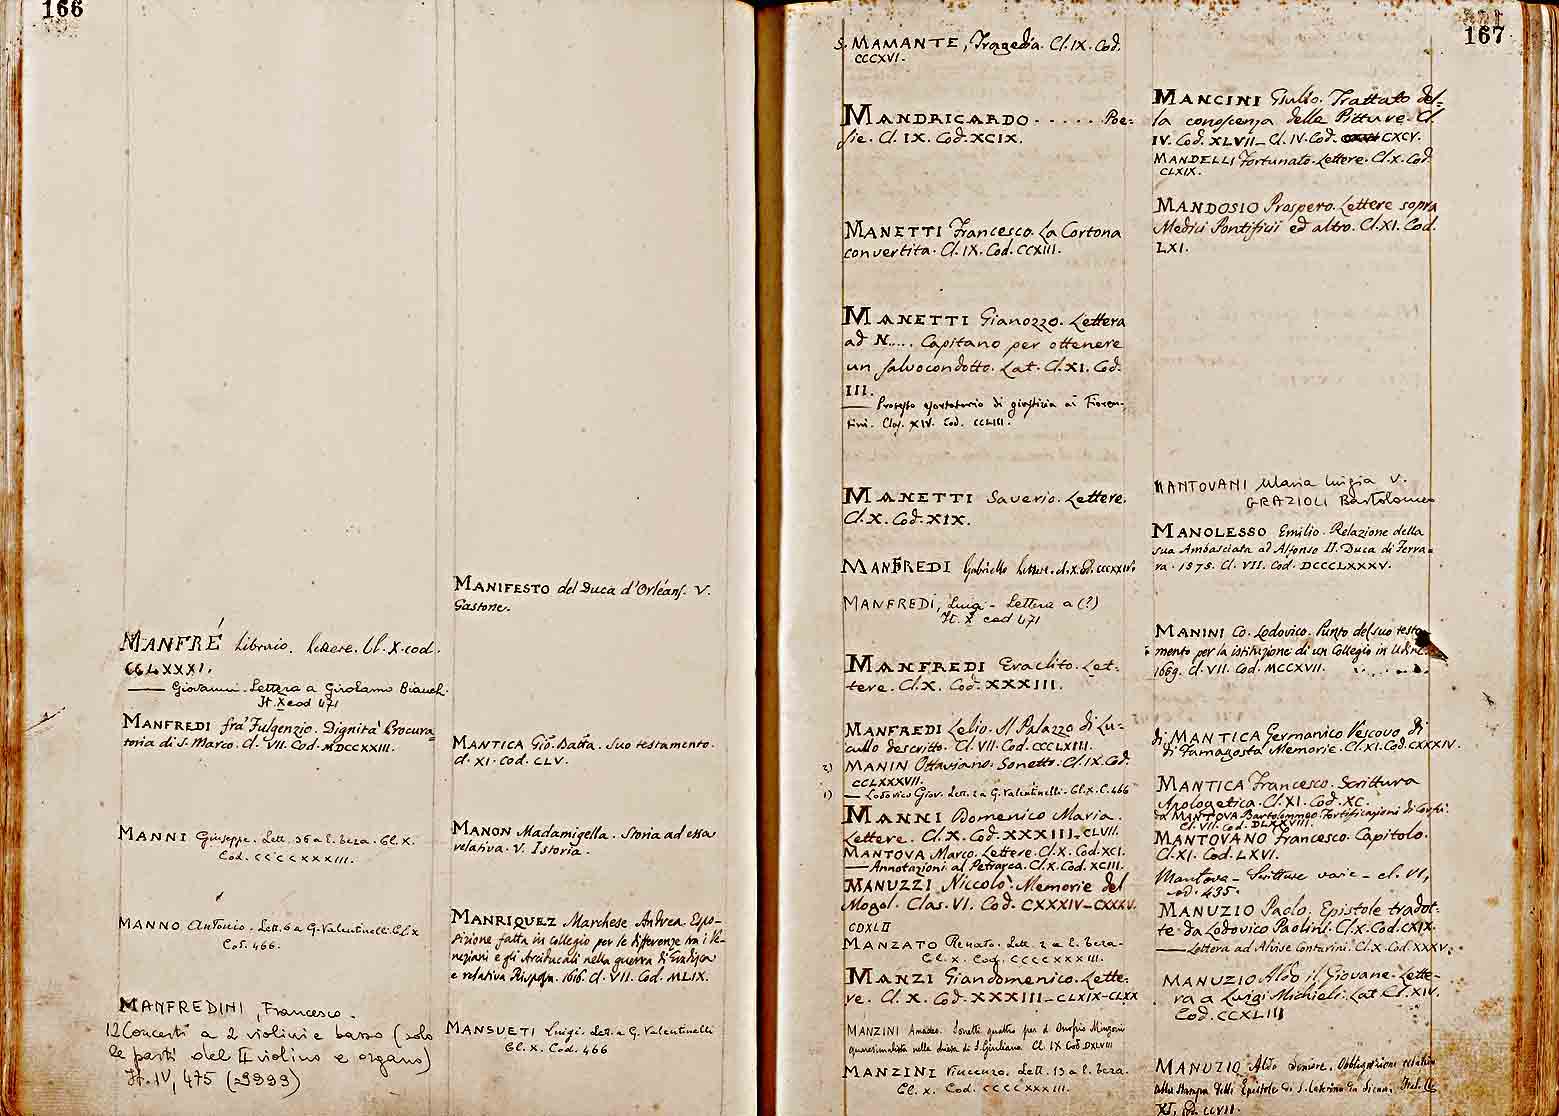 166
MANFRÉ Libraio. Lettere. Cl. X. cod.
CCLXXXI.
—— Giovanni. Lettera a Girolamo Bianch.
It. X cod 471
MANFREDI fra' Fulgenzio. Dignità Procura=
toria di S. Marco. Cl. VII. Cod. MDCCXXIII.
MANNI Giuseppe. Lett. 36 a L. Beza. Cl. X.
Cod. CCCCXXXIII.
MANNO Antonio. Lett. 6 a G. Valentinelli. Cl. X
Cod. 466.
MANFREDINI, Francesco.
12 Concerti a 2 violini e basso (solo
le parti del II violino e organo)
It. IV, 475 (=9999)
MANIFESTO del Duca d'Orléans. V.
Gastone.
MANTICA Gio. Batta. Suo testamento.
Cl. XI. Cod. CLV.
MANON Madamigella. Storia ad essa
relativa. V. Istoria.
MANRIQUEZ Marchese Andrea. Espo-
sizione fatta in Collegio per le differenze tra i Ve-
neziani e gli Arciducali nella guerra di Gradisca
e relativa Risposta. 1616. Cl. VII. Cod. MLIX.
MANSUETI Luigi. Let. a G. Valentinelli
Cl. X. Cod. 466
167
S. MAMANTE, Tragedia. Cl. IX. Cod.
CCCXVI.
MANDRICARDO . . . . . Poe=
sie. Cl. IX. Cod. XCIX.
MANETTI Francesco. La Cortona
convertita. Cl. IX. Cod. CCXIII.
MANETTI Gianozzo. Lettera
ad N.... Capitano per ottenere
un salvocondotto. Lat. Cl. XI. Cod.
III.
—— Protesto esortatorio di giustizia ai Fioren-
tini. Clas. XIV. Cod. CCLIII.
MANETTI Saverio. Lettere.
Cl. X. Cod. XIX.
MANFREDI Gabriello Lettere. cl. X. Cod. CCCXXIV.
MANFREDI, Luigi - Lettera a (?)
It. X cod 471
MANFREDI Eraclito. Let-
tere. Cl. X. Cod. XXXIII.
MANFREDI Lelio. Il Palazzo di Lu-
cullo descritto. Cl. VII. Cod. CCCLXIII.
2) MANIN Ottaviano. Sonetto. Cl. IX. Cod.
CCLXXXVII.
1) — Lodovico Giov. Lett. 2 a G. Valentinelli. Cl. X. C. 466
MANNI Domenico Maria.
Lettere. Cl. X. Cod. XXXIII_CLVII.
MANTOVA Marco. Lettere. Cl. X. Cod. XCI.
—— Annotazioni al Petrarca. Cl. X. Cod. XCIII.
MANUZZI Niccolò. Memorie del
Mogol. Clas. VI. Cod. CXXXIV–CXXXV.
CDXLII
MANZATO Renato. Lett. 2 a L. Beza.
Cl. X. Cod. CCCCXXXIII.
MANZI Giandomenico. Lette-
re. Cl. X. Cod. XXXIII_CLXIX–CLXX
MANZINI Amadeo. Sonetti quattro per d. Onofrio Minzoni
quaresimalista nella chiesa di S. Giuliano Cl. IX Cod DXLVIII
MANZINI Vincenzo. Lett. 13 a L. Beza.
Cl. X. Cod. CCCCXXXIII.
MANCINI Giulio. Trattato del-
la conoscenza delle Pitture. Cl.
IV. Cod. XLVII_Cl. IV. Cod. CXCV.
MANDELLI Fortunato. Lettere. Cl. X. Cod
CLXIX.
MANDOSIO Prospero. Lettere sopra
Medici Pontificii ed altro. Cl. XI. Cod.
LXI.
MANTOVANI Maria Luigia V.
GRAZIOLI Bartolomeo
MANOLESSO Emilio. Relazione della
sua Ambasciata ad Alfonso II. Duca di Ferra=
ra. 1575. Cl. VII. Cod. DCCCLXXXV.
MANINI Co. Lodovico. Punto del suo testa
mento per la istituzione di un Collegio in Udine.
1669. Cl. VII. Cod. MCCXVII.
di MANTICA Germanico Vescovo di
di Famagosta Memorie. Cl. XI. Cod. CXXXIV.
MANTICA Francesco. Scrittura
Apologetica. Cl. XI. Cod. XC.
da MANTOVA Bartolommeo Fortificazioni di Corfù.
Cl. VII. Cod. DLXXXIII.
MANTOVANO Francesco. Capitolo.
Cl. XI. Cod. LXVI.
Mantova – Scritture varie – cl. VI,
cod. 435.
MANUZIO Paolo. Epistole tradot-
te da Lodovico Paolini. Cl. X. Cod. CXIX.
—— Lettera ad Alvise Contarini. Cl. X. Cod. XXXV.
MANUZIO Aldo il Giovane. Lette-
ra a Luigi Michieli. Lat. Cl. XIV.
Cod. CCXLIII
MANUZIO Aldo Seniore. Obbligazione relativa
alla stampa delle Epistole di S. Caterina da Siena. Ital. Cl.
XI. Cod. CCVII.